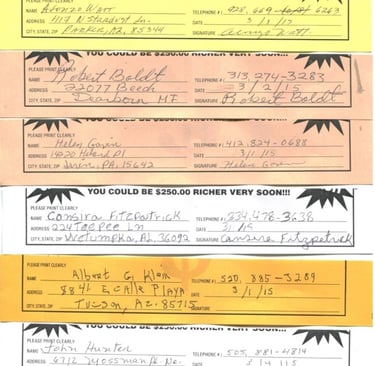 PLEASE PRINT CLEARLY
NAME Alonzo Wyatt TELEPHONE #: 928, 669 6263
ADDRESS 417 N Stardust Ln. DATE 3/1/15
CITY, STATE, ZIP Parker, AZ, 85344 SIGNATURE
YOU COULD BE $250.00 RICHER VERY SOON!!!
PLEASE PRINT CLEARLY
NAME Robert Boldt TELEPHONE #: 313, 274-3283
ADDRESS 22077 Beech DATE 3/2/15
CITY, STATE, ZIP Dearborn MI SIGNATURE Robert Boldt
PLEASE PRINT CLEARLY
NAME Helen Goven TELEPHONE #: 412, 824-0688
ADDRESS 14020 Hilland Pl DATE 3/1/15
CITY, STATE, ZIP Irwin, PA, 15642 SIGNATURE Helen Goven
YOU COULD BE $250.00 RICHER VERY SOON!!!
PLEASE PRINT CLEARLY
NAME Cansira Fitzpatrick TELEPHONE #: 334, 478-3638
ADDRESS 224 Tee Pee Ln DATE 3/1/15
CITY, STATE, ZIP Wetumpka, AL, 36092 SIGNATURE Cansira Fitzpatrick
PLEASE PRINT CLEARLY
NAME Albert G. Klein TELEPHONE #: 520, 885-3289
ADDRESS 8841 E Calle Playa DATE 3/1/15
CITY, STATE, ZIP Tucson, AZ. 85715 SIGNATURE
YOU COULD BE $250.00 RICHER VERY SOON!!!
PLEASE PRINT CLEARLY
NAME John Hunter TELEPHONE #: 505, 881-4814
ADDRESS 6712 Mossman Pl. Ne. DATE